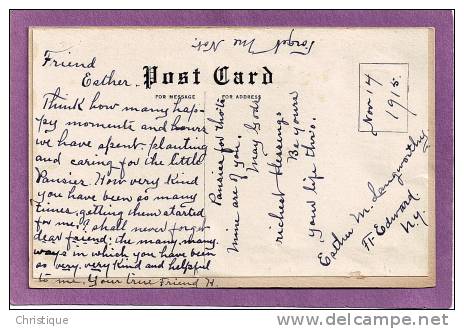 Forget Me Not
Friend
Esther.
Post Card
FOR MESSAGE
FOR ADDRESS
Think how many hap-
py moments and hours
we have spent planting
and caring for the little
Pansies. How very kind
you have been so many
times, getting them started
for me. I shall never forget
dear friend; the many, many
ways in which you have been
so very, very kind and helpful
to me. Your true Friend H.
Pansies for thots.
mine are of you.
May Gods
richest blessings
Be yours
your life thro.
Nov 14
1915.
Esther M. Langworthy
Ft. Edward
N.Y.
© Christique
delcampe.net